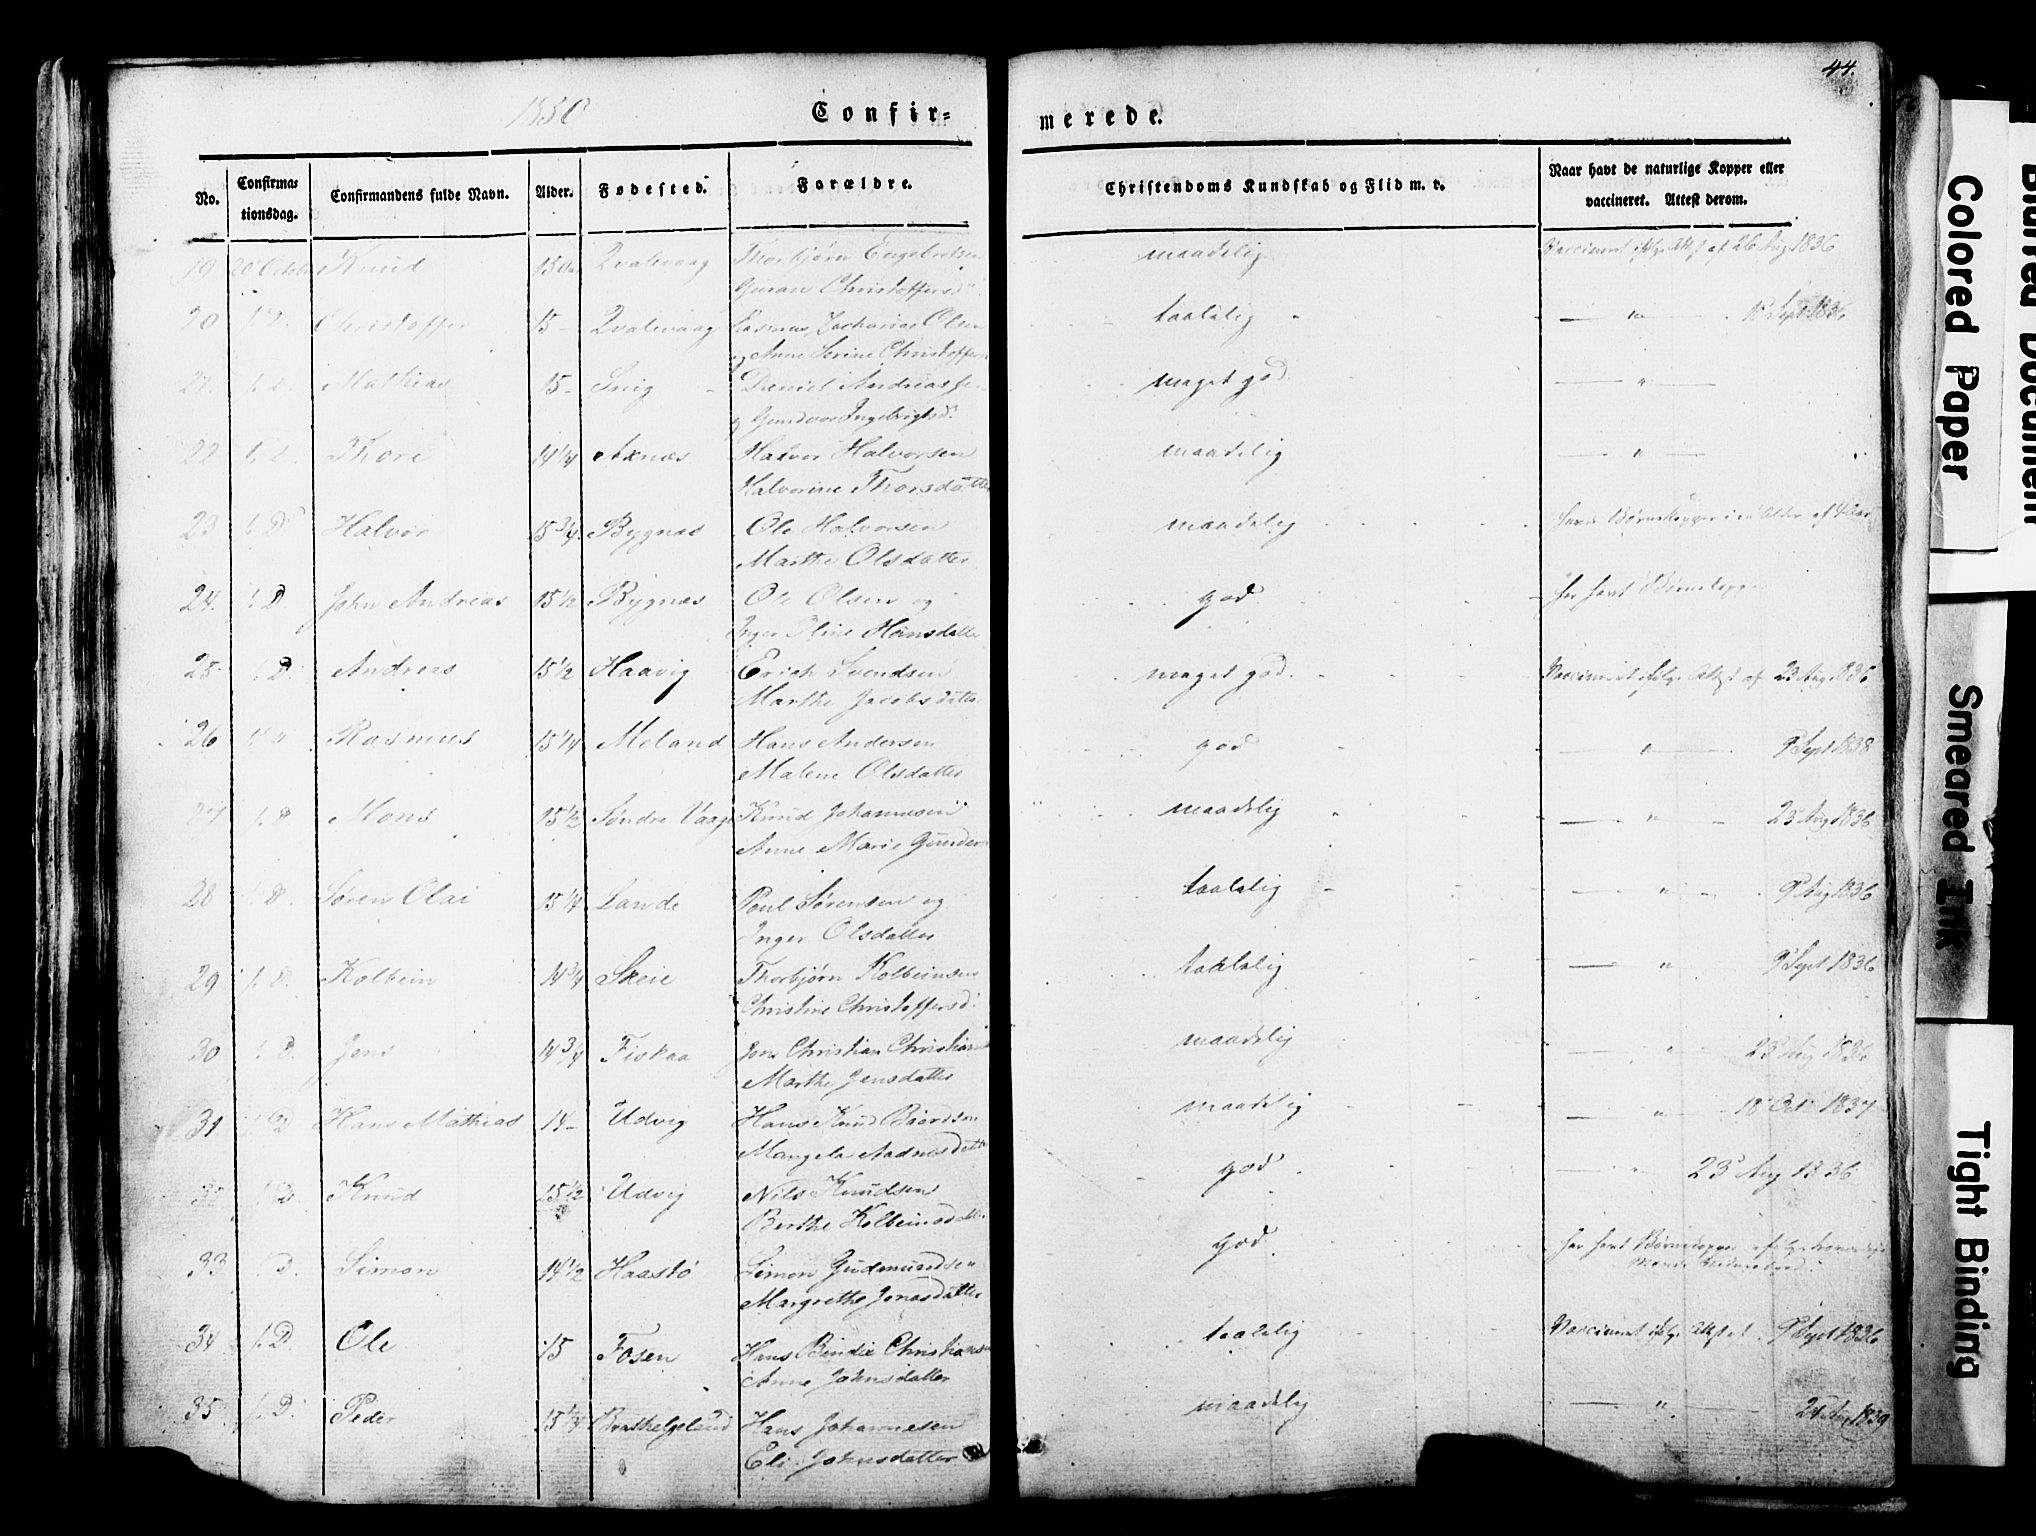 44.
1850
Confir-
merede.
No.
Confirma-
tionsdag.
Confirmandens fulde Navn.
Alder.
Fødested.
Forældre.
Christendoms Kundskab og Flid m. v.
Naar havt de naturlige Kopper eller
vaccineret. Attest derom.
19 20 October Knud 15 Qvalevaag Thorbjørn Engebretsen maadelig 26 Aug 1836
Guran Christoffersd
20 Christoffer 15 - Qvalevaag Rasmus Zacharias Olsen taalelig - " - Sept 1836
og Anne Serine Christoffersd
21. Mathias 15 - Snig Daniel Andreassen meget god. - " -
og Gundvor Ingebrigtsd.
22 Thore 14 1/4 Axnæs Halvor Halvorsen maadelig - " -
Halvorine Thorsdatter
23 D Halvor 15 3/4 Bygnæs Ole Halvorsen maadelig Børnekopper i en Alder af
Marthe Olsdatter
24. D John Andreas 15 1/2 Bygnæs Ole Olsen og god har havt Børnekopper
Inger Oline Hansdatter
25 D Andreas 15 1/2 Haavig Erich Svendsen meget god. Vaccineret ifølge Attest af 23 Aug 1836
Marthe Jacobsdatter
26 Rasmus 15 1/4 Meland Hans Andersen god - " - 9 Sept 1838
Malene Olsdatter
27 D Mons 15 1/2 Søndre Vaage Knud Johannesen maadelig - " - 23 Aug 1836
Anne Marie Gunders
28 D. Søren Olai 15 1/4 Lande Poul Sørensen og taalelig - " - 9 Aug 1836
Inger Olsdatter
29 D. Kolbein 14 3/4 Skeie Thorbjørn Kolbeinsen taalelig - " - 9 Sept 1836
Christine Christoffersd.
30 D. Jens 14 3/4 Fiskaa Jens Christian Christians maadelig - " - 23 Aug 1836
Marthe Jensdatter
31 D Hans Mathias 14 - Udvig Hans Knud Baardsen maadelig - " - 18 Oct 1837
Mangela Aadnesdatter
D Knud 15 1/2 Udvig Nils Knudsen god. - " - 23 Aug 1836
Berthe Kolbeinsdatter
33 D. Simon 14 1/2 Haastø Simon Gudmundsen god. har havt Børnekopper
Margrethe Jonasdatter
34 D Ole 15 Fosen Hans Bendix Christians taalelig Vaccineret ifølge Attest af 9 Sept 1836
Anne Johnsdatter
35 D. Peder 15 1/4 Brathelgeland Hans Johannesen maadelig - " - 24 Aug 1839
Eli Johnsdatter
Blurred Document
Colored Paper
Smeared Ink
Tight Binding